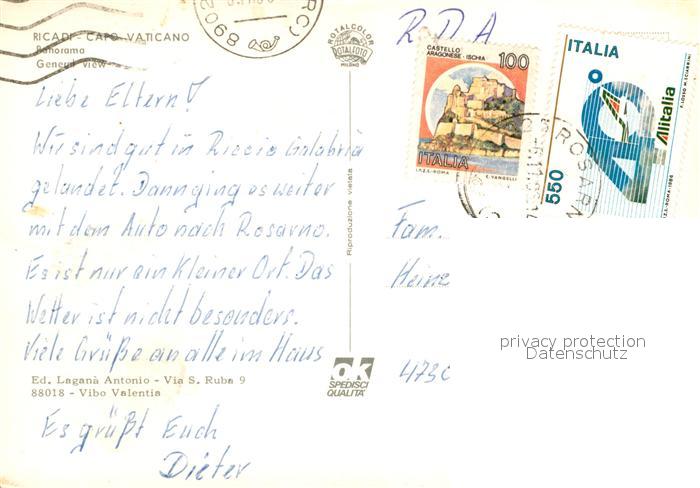 RICADI - CAPO VATICANO
Panorama
General view
ROTALCOLOR
ROTALFOTO
MILANO
RC)
R D A
CASTELLO
ARAGONESE - ISCHIA
100
ITALIA
I.P.Z.S. - ROMA
E. VANGELLI
ITALIA
40°
Alitalia
550
I.P.Z.S. - ROMA - 1986
ROSARN
Liebe Eltern!
Wir sind gut in Riccio Calabria
gelandet. Dann ging es weiter
mit dem Auto nach Rosarno.
Es ist nur ein kleiner Ort. Das
Wetter ist nicht besonders.
Viele Grüße an alle im Haus
Es grüßt Euch
Dieter
Riproduzione vietata
Fam.
Heinz
privacy protection
Datenschutz
ok
SPEDISCI
QUALITA'
Ed. Laganà Antonio - Via S. Ruba 9
88018 - Vibo Valentia